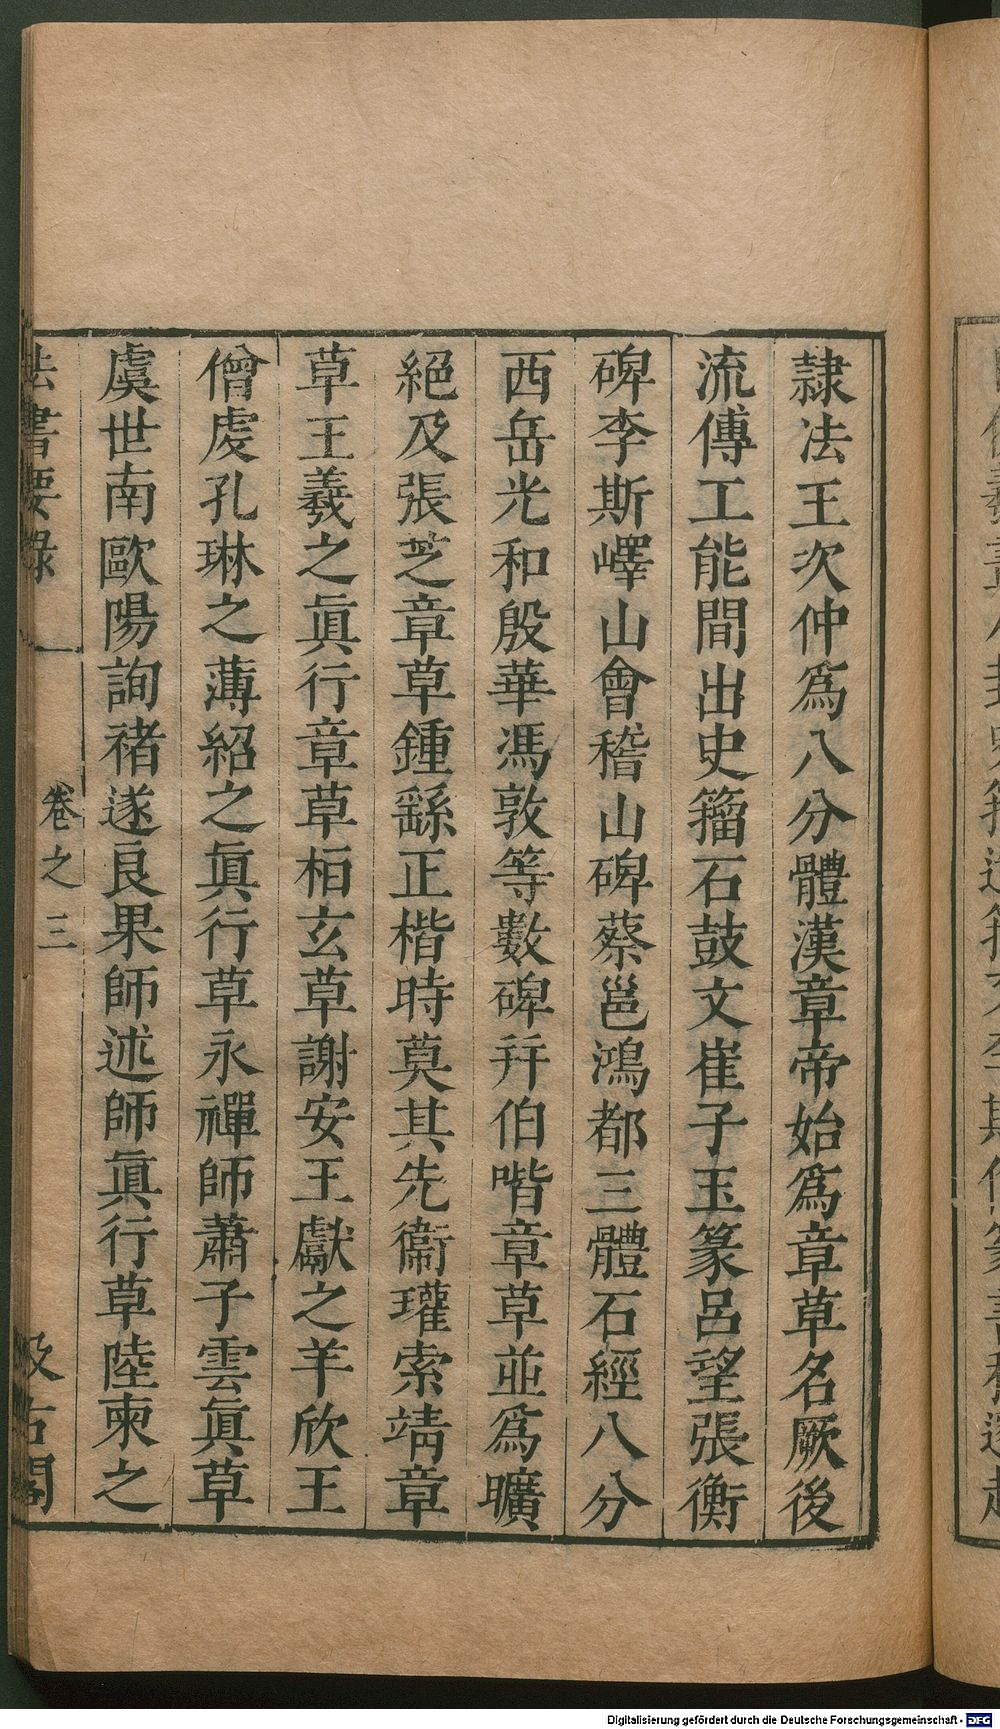 隸法王次仲爲八分體漢章帝始爲章草名厥後
流傳工能間出史籀石鼓文崔子玉篆呂望張衡
碑李斯嶧山會稽山碑蔡邕鴻都三體石經八分
西岳光和殷華馮敦等數碑并伯喈章草並爲曠
絕及張芝章草鍾繇正楷時莫其先衞瓘索靖章
草王羲之眞行章草桓玄草謝安王獻之羊欣王
僧虔孔琳之薄紹之眞行草永禪師蕭子雲眞草
虞世南歐陽詢褚遂良果師述師眞行草陸柬之
法書要錄 卷之三 汲古閣
Digitalisierung gefördert durch die Deutsche Forschungsgemeinschaft - DFG